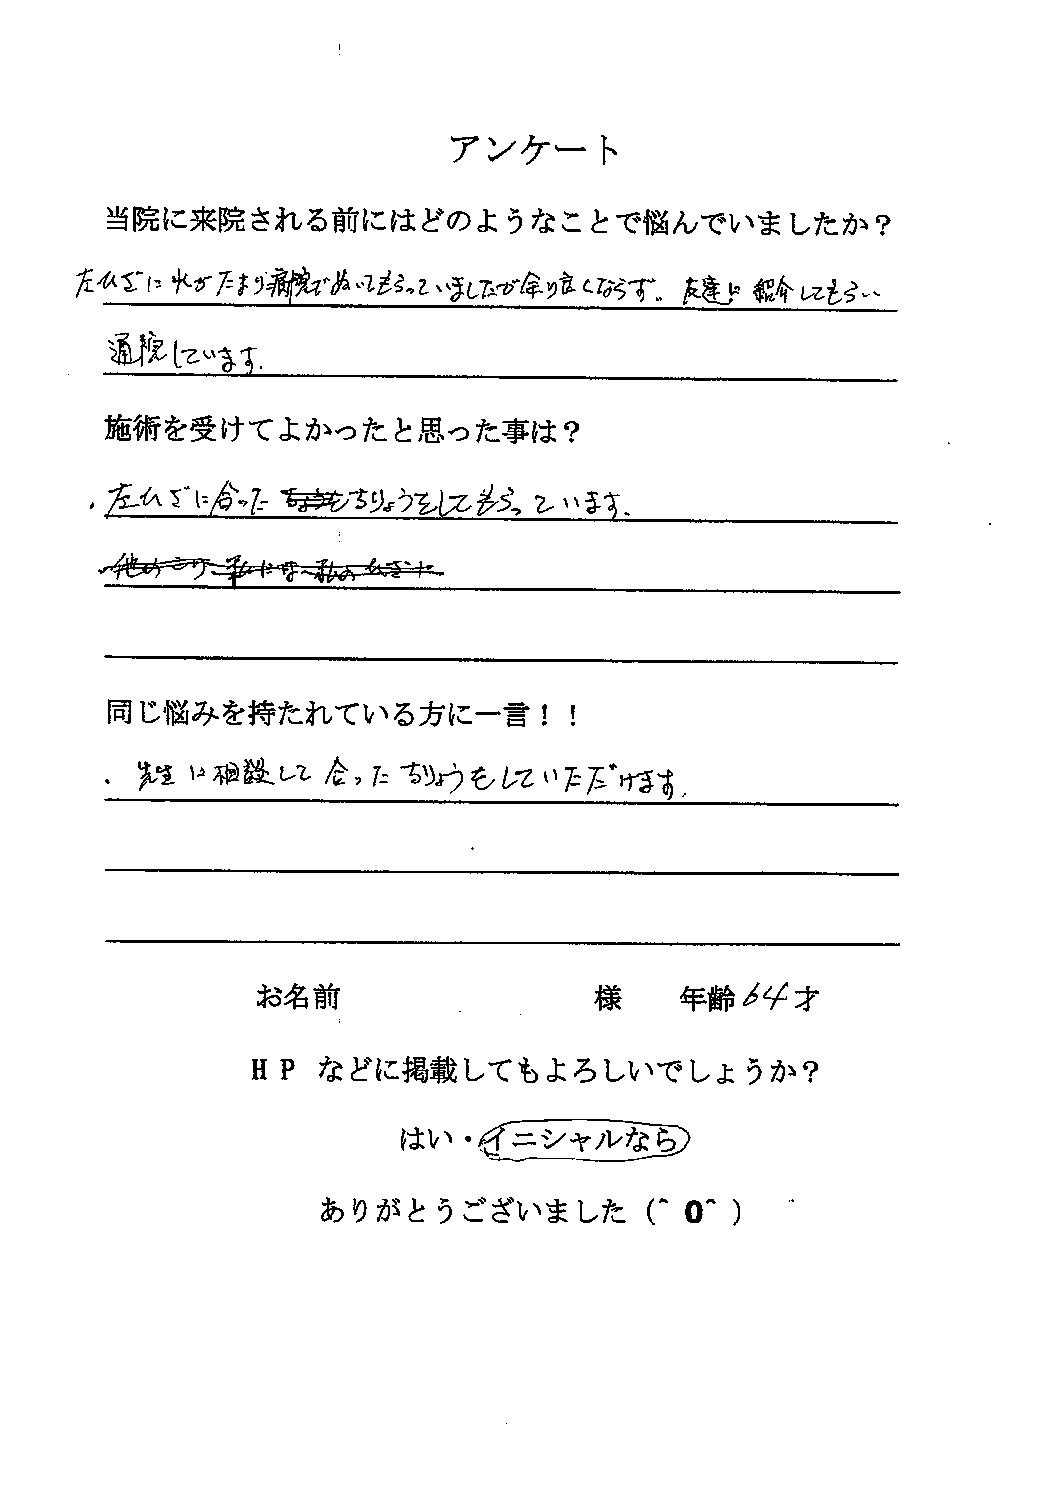 アンケート
当院に来院される前にはどのようなことで悩んでいましたか？
左ひざに水がたまり病院でぬいてもらっていましたが余り良くならず。友達に紹介してもらい
通院しています.
施術を受けてよかったと思った事は？
・左ひざに合った ちりょうをしてもらっています.
同じ悩みを持たれている方に一言！！
・先生に相談して合ったちりょうをしていただけます.
お名前 様 年齢 64才
HP などに掲載してもよろしいでしょうか？
はい・イニシャルなら
ありがとうございました（＾0＾）